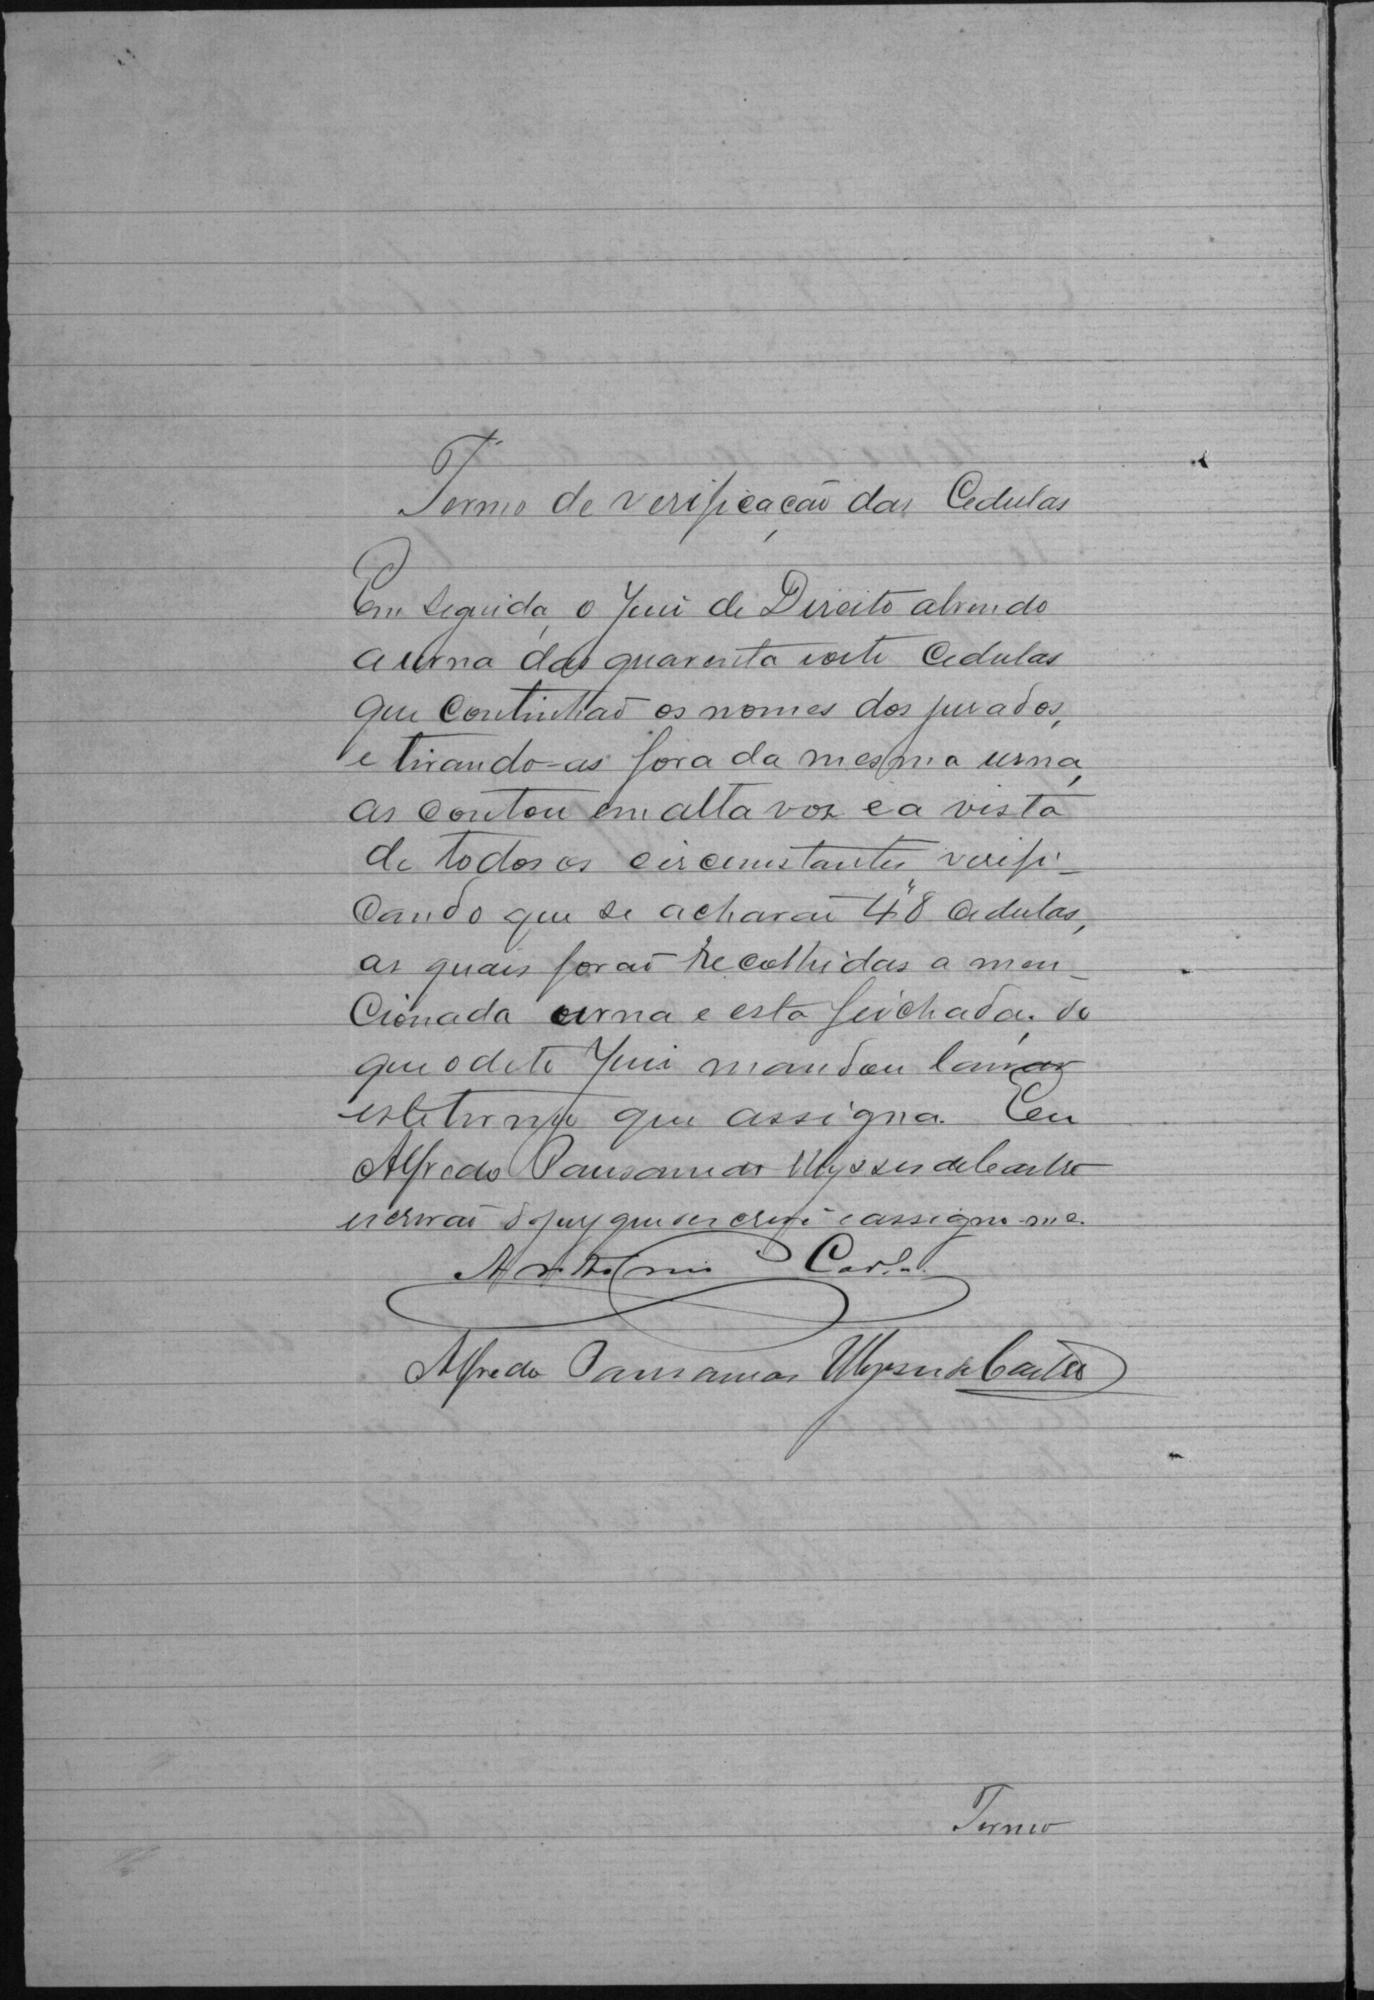 Termo de verificação das Cedulas
Em seguida, o Juiz de Direito abrindo
a urna das quarenta e oito Cedulas
que continhaõ os nomes dos jurados,
e tirando-as fora da mesma urna,
as contou em alta voz e a vista
de todos os circumstantes verifi-
cando que se acharaõ 48 cedulas,
as quais foraõ recolhidas a men-
cionada urna e esta feichada. do
que o dito Juiz mandou lavrar
este termo que assigna. Eu
Alfredo Pausanias Ulysses de Castro
escrivaõ do jury que escrevi e assigno-me.
Antonio Carlos
Alfredo Pausanias Ulysses de Castro
Termo